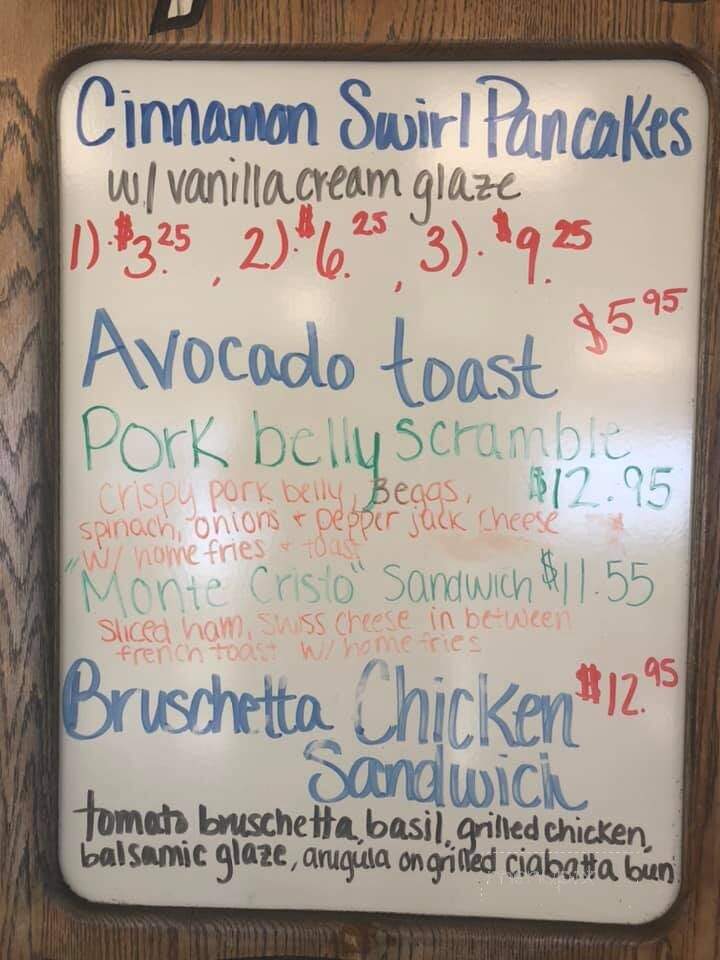 Cinnamon Swirl Pancakes
w/ vanilla cream glaze
1). $3.25, 2). $6.25, 3). $9.25
$5 95
Avocado toast
Pork belly scramble
$12.95
crispy pork belly, 3 eggs,
spinach, onions + pepper jack cheese
w/ home fries + toast
"Monte Cristo" Sandwich $11.55
Sliced ham, swiss cheese in between
french toast w/ home fries
Bruschetta Chicken $12.95
Sandwich
tomato bruschetta, basil, grilled chicken,
balsamic glaze, arugula on grilled ciabatta bun